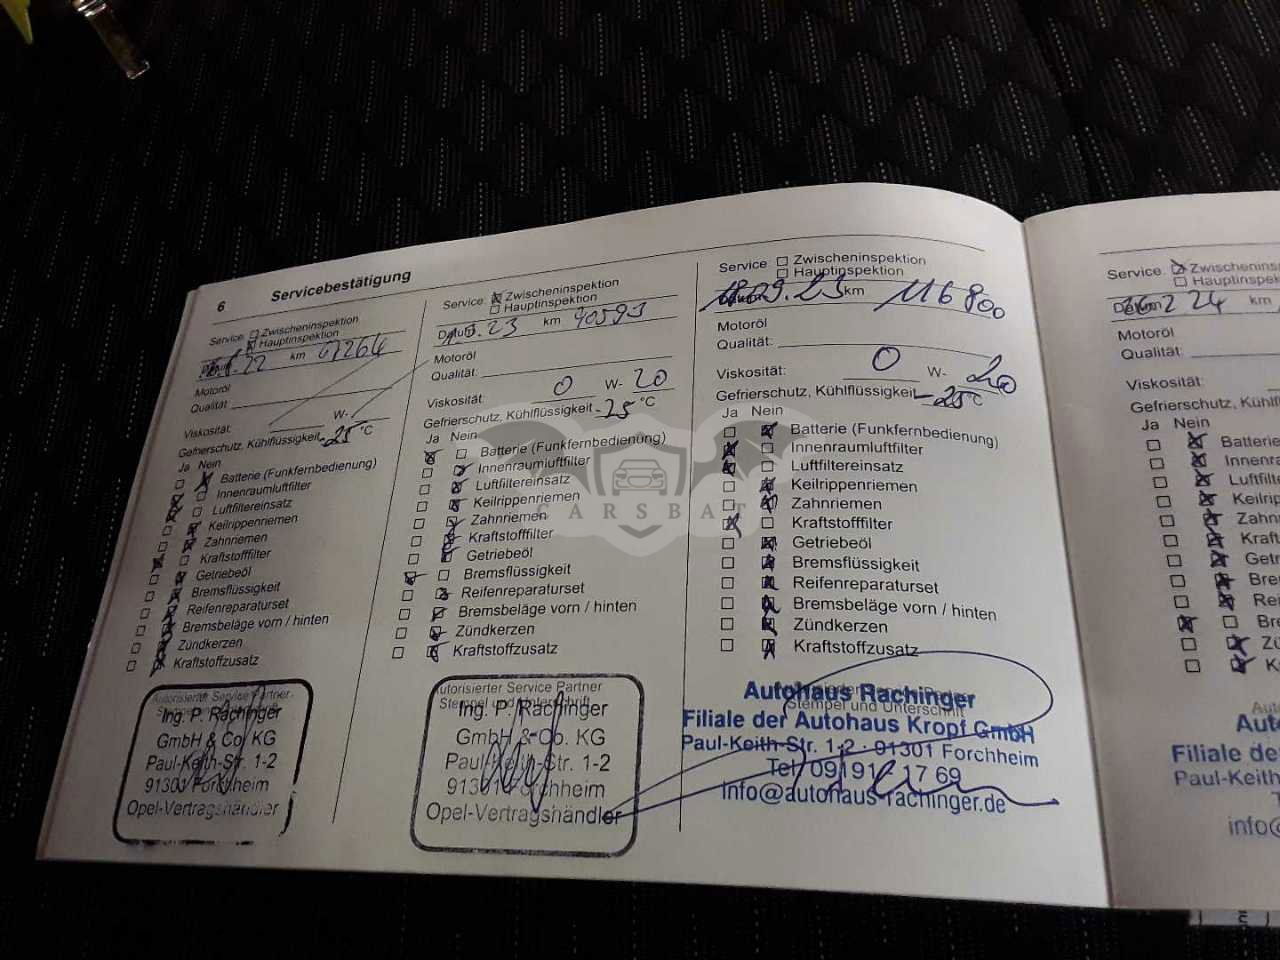 6 Servicebestätigung
Service: Zwischeninspektion
Hauptinspektion
.22 km 67264
Motoröl
Qualität:
Viskosität: W-
Gefrierschutz, Kühlflüssigkeit -25 °C
Ja Nein
Batterie (Funkfernbedienung)
Innenraumluftfilter
Luftfiltereinsatz
Keilrippenriemen
Zahnriemen
Kraftstofffilter
Getriebeöl
Bremsflüssigkeit
Reifenreparaturset
Bremsbeläge vorn / hinten
Zündkerzen
Kraftstoffzusatz
Autorisierter Service Partner
Stempel
Ing. P. Rachinger
GmbH & Co. KG
Paul-Keith-Str. 1-2
91301 Forchheim
Opel-Vertragshändler
Service: Zwischeninspektion
Hauptinspektion
.23 km 90593
Motoröl
Qualität:
Viskosität: 0 W- 20
Gefrierschutz, Kühlflüssigkeit -25 °C
Ja Nein
Batterie (Funkfernbedienung)
Innenraumluftfilter
Luftfiltereinsatz
Keilrippenriemen
Zahnriemen
Kraftstofffilter
Getriebeöl
Bremsflüssigkeit
Reifenreparaturset
Bremsbeläge vorn / hinten
Zündkerzen
Kraftstoffzusatz
Autorisierter Service Partner
Stempel und Unterschrift
Ing. P. Rachinger
GmbH & Co. KG
Paul-Keith-Str. 1-2
91301 Forchheim
Opel-Vertragshändler
Service: Zwischeninspektion
Hauptinspektion
09.23 km 116800
Motoröl
Qualität:
Viskosität: 0 W- 20
Gefrierschutz, Kühlflüssigkeit -25 °C
Ja Nein
Batterie (Funkfernbedienung)
Innenraumluftfilter
Luftfiltereinsatz
Keilrippenriemen
Zahnriemen
Kraftstofffilter
Getriebeöl
Bremsflüssigkeit
Reifenreparaturset
Bremsbeläge vorn / hinten
Zündkerzen
Kraftstoffzusatz
Autorisierter Service Partner
Stempel und Unterschrift
Autohaus Rachinger
Filiale der Autohaus Kropf GmbH
Paul-Keith-Str. 1-2 · 91301 Forchheim
Tel. 09191 - 17 69
info@autohaus-rachinger.de
Service: Zwischeninsp
Hauptinspe
2 24 km
Motoröl
Qualität:
Viskosität:
Gefrierschutz, Kühlflüssi
Ja Nein
Batterie
Innenra
Luftfilte
Keilrip
Zahn
Kraft
Getri
Bre
Rei
Bre
Zü
K
Au
Auto
Filiale de
Paul-Keith
T
info@
CARSBAT